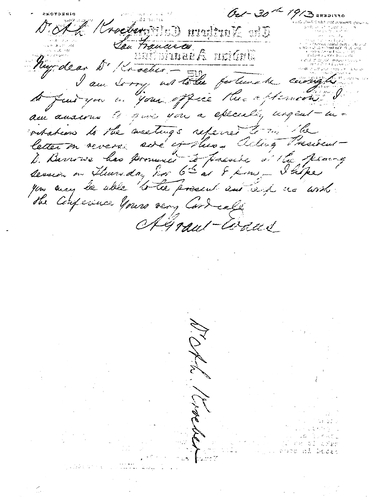 Oct 30th 1913
Dr A.L. Kroeber
San Francisco
My dear Dr Kroeber —
I am sorry not to be fortunate enough
to find you in your office this afternoon. I
am anxious to give you a specially urgent in-
vitation to the meetings referred to in the
letter on reverse side of this. Acting President
D. Barrows has promised to preside at the opening
session on Thursday Nov 6th at 8 p.m. I hope
you may be able to be present and help us with
the Conference. Yours very Cordially
A Grant-Evans
Dr A.L. Kroeber
The Northern California
Indian Association